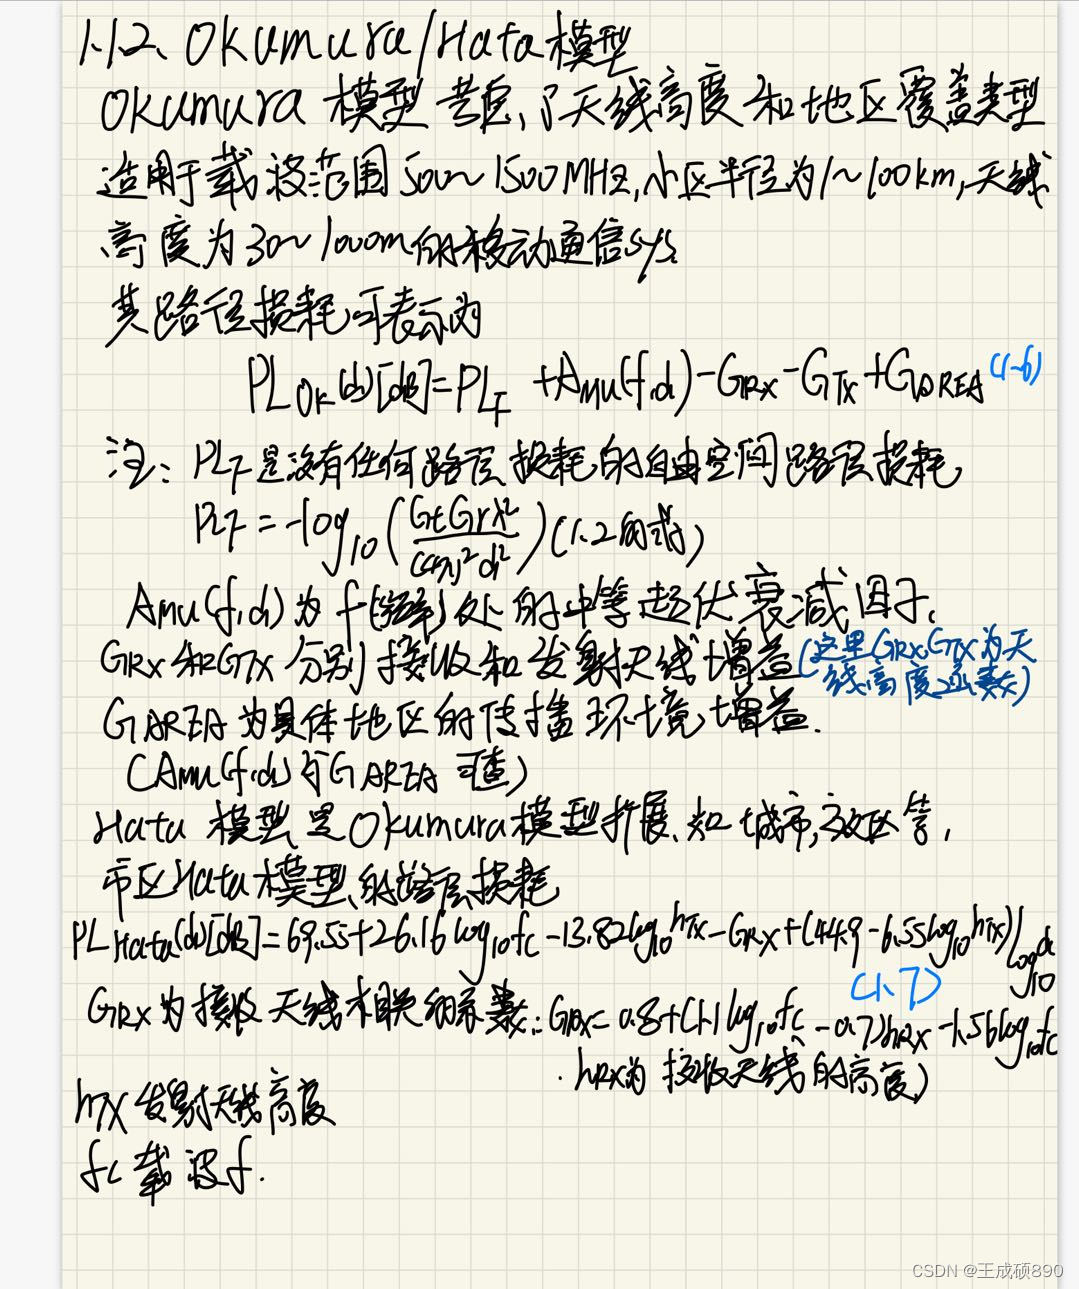 1.1.2、Okumura/Hata模型
Okumura 模型考虑了天线高度和地区覆盖类型
适用于载波范围500~1500MHZ,小区半径为1~100km,天线
高度为30~1000m的移动通信sys
其路径损耗可表示为
PL_OK(d)[dB]=PL_F +A_MU(f,d)-G_RX-G_TX+G_AREA (1-6)
注: PL_F是没有任何路径损耗的自由空间路径损耗
PL_F=-log_10(GtGrλ²/(4π)²d²)(1.2的式)
Amu(f,d)为f(频率)处的中等起伏衰减因子,
GRX和GTX分别接收和发射天线增益(这里GRX,GTX为天
线高度函数)
GAREA为具体地区的传播环境增益.
(Amu(f,d)与GAREA可查)
Hata 模型是Okumura模型扩展,如城市,郊区等,
市区Hata模型的路径损耗
PL_Hata(d)[dB]=69.55+26.16log_10fc-13.82log_10hTX-GRX+(44.9-6.55log_10hTX)log_10d
(1.7)
GRX为接收天线相联的系数:GRX=0.8+(1.1log_10fc-0.7)hRX-1.56log_10fc
.hRX为接收天线的高度)
hTX发射天线高度
fc载波f.
CSDN @王成硕890